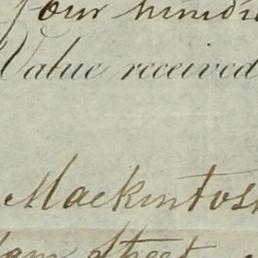 four hundr
Value received
Mackintosh
Street